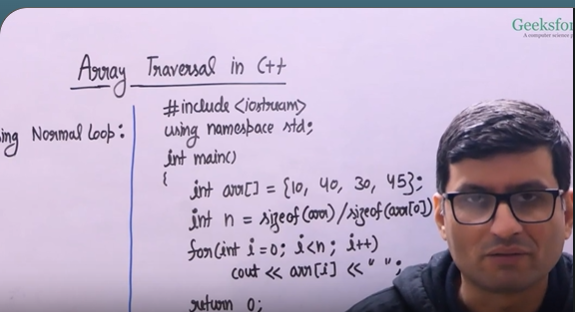 Geeksfor
A computer science
Array Traversal in C++
ing Normal Loop:
#include <iostream>
using namespace std;
int main()
{
int arr[] = {10, 40, 30, 45};
int n = sizeof(arr)/sizeof(arr[0])
for(int i=0; i<n; i++)
cout << arr[i] << " ";
return 0;